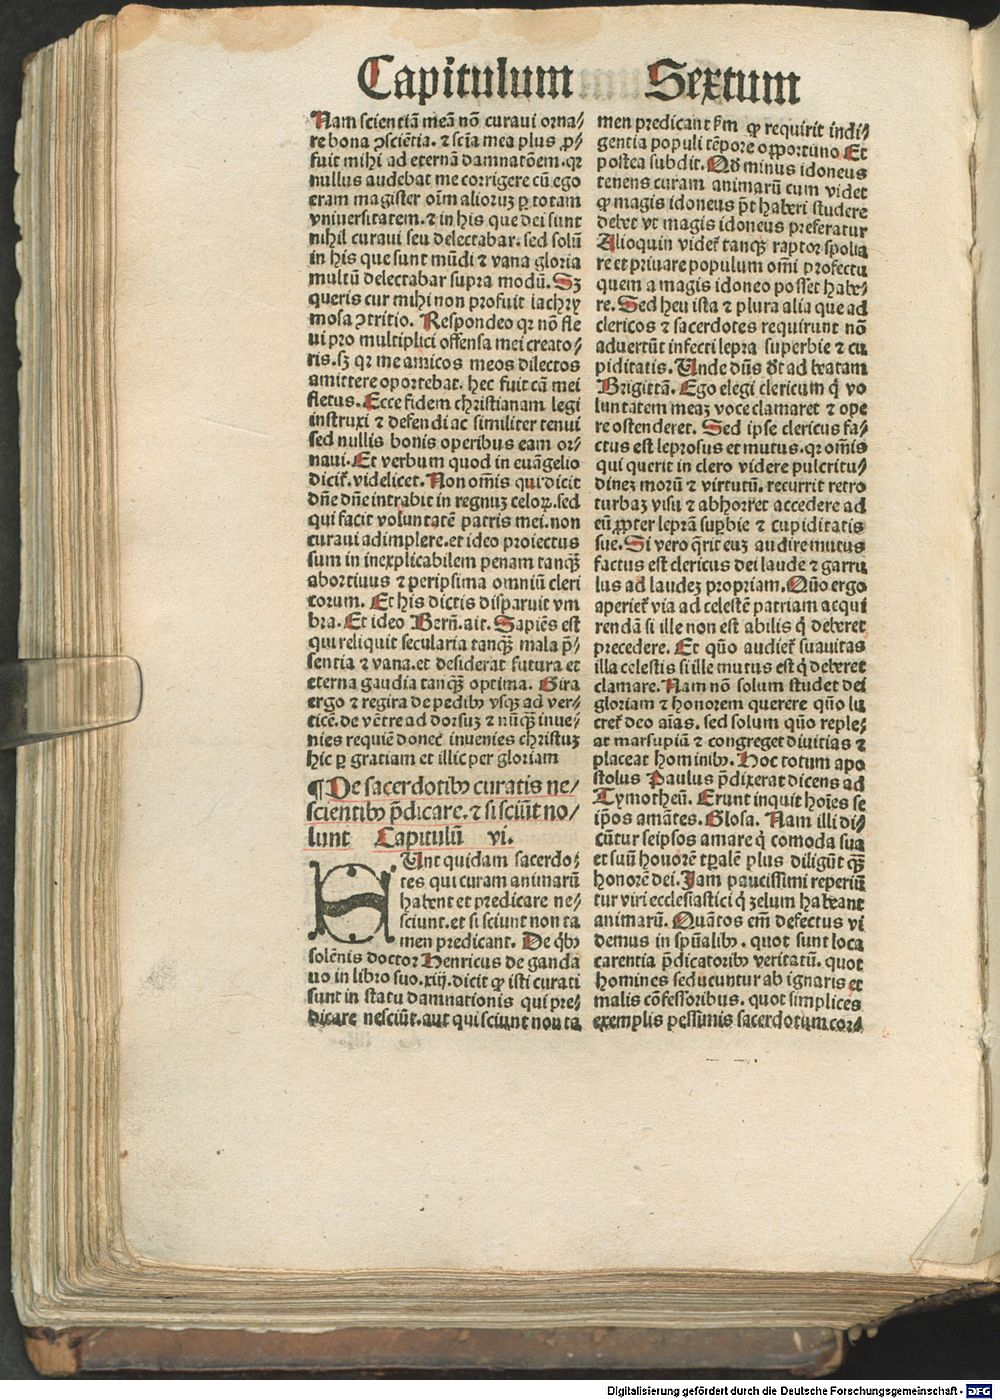 Capitulum Sextum
Nam scientiā meā nō curaui orna⸗
re bona ꝯsciētia. ⁊ scīa mea plus ꝓ⸗
fuit mihi ad eternā damnatōem. qꝛ
nullus audebat me corrigere cū ego
eram magister oīm alioruꝫ ꝑ totam
vniuersitatem. ⁊ in his que dei sunt
nihil curaui seu delectabar. sed solū
in his que sunt mūdi ⁊ vana gloria
multū delectabar supra modū. Sꝫ
queris cur mihi non profuit lachry
mosa ꝯtritio. Respondeo qꝛ nō fle
ui pro multiplici offensa mei creato⸗
ris. sꝫ qꝛ me amicos meos dilectos
amittere oportebat. hec fuit cā mei
fletus. Ecce fidem christianam legi
instruxi ⁊ defendi ac similiter tenui
sed nullis bonis operibus eam or⸗
naui. Et verbum quod in euāgelio
dicit̄. videlicet. Non om̄is qui dicit
dn̄e dn̄e intrabit in regnuꝫ celoꝝ. sed
qui facit voluntatē patris mei. non
curaui adimplere. et ideo proiectus
sum in inexplicabilem penam tanqꝫ
abortiuus ⁊ peripsima omniū cleri
corum. Et his dictis disparuit vm
bra. Et ideo Bern̄. ait. Sapiēs est
qui reliquit secularia tanqꝫ mala p̄⸗
sentia ⁊ vana. et desiderat futura et
eterna gaudia tanqꝫ optima. Gira
ergo ⁊ regira de pedibꝰ vsqꝫ ad ver⸗
ticē. de vētre ad dorsuꝫ ⁊ nūqꝫ inue⸗
nies requiē donec inuenies christuꝫ
hic ꝑ gratiam et illic per gloriam
¶ De sacerdotibꝰ curatis ne⸗
scientibꝰ p̄dicare. ⁊ si sciūt no⸗
lunt Capitulū vi.
SUnt quidam sacerdo⸗
tes qui curam animarū
habent et predicare ne⸗
sciunt. et si sciunt non ta
men predicant. De qͥbꝰ
solēnis doctor Henricus de ganda
uo in libro suo. xiij. dicit ꝙ isti curati
sunt in statu damnationis qui pre⸗
dicare nesciūt. aut qui sciunt non ta
men predicant ẜm ꝙ requirit indi⸗
gentia populi tēpore oꝑportuno. Et
postea subdit. Qd̓ minus idoneus
tenens curam animarū cum videt
ꝙ magis idoneus p̄t haberi studere
debet vt magis idoneus preferatur
Alioquin videt̄ tanqꝫ raptor spolia
re et priuare populum om̄i profectu
quem a magis idoneo posset habe⸗
re. Sed heu ista ⁊ plura alia que ad
clericos ⁊ sacerdotes requirunt nō
aduertūt infecti lepra superbie ⁊ cu
piditatis. Unde dn̄s dt̄ ad beatam
Brigittā. Ego elegi clericum qͥ vo
luntatem meaꝫ voce clamaret ⁊ ope
re ostenderet. Sed ipse clericus fa⸗
ctus est leprosus et mutus. qꝛ om̄is
qui querit in clero videre pulcritu⸗
dineꝫ morū ⁊ virtutū. recurrit retro
turbaꝫ visu ⁊ abhorret accedere ad
eū ꝓpter leprā suꝑbie ⁊ cupiditatis
sue. Si vero q̄rit euꝫ audire mutus
factus est clericus dei laude ⁊ garru
lus ad laudeꝫ propriam. Quō ergo
aperiet̄ via ad celestē patriam acqui
rendā si ille non est abilis qͥ deberet
precedere. Et quō audiet̄ suauitas
illa celestis si ille mutus est qͥ deberet
clamare. Nam nō solum studet dei
gloriam ⁊ honorem querere quō lu
cret̄ deo aīas. sed solum quō reple⸗
at marsupiā ⁊ congreget diuitias ⁊
placeat hominibꝰ. Hoc totum apo
stolus Paulus p̄dixerat dicens ad
Tymotheū. Erunt inquit hoīes se
ip̄os amātes. Glosa. Nam illi di⸗
cūtur seipsos amare qͥ comoda sua
et suū honorē tꝑalē plus diligūt qꝫ
honorē dei. Jam paucissimi reperiū
tur viri ecclesiastici qͥ zelum habeant
animarū. Quātos em̄ defectus vi
demus in spūalibꝰ. quot sunt loca
carentia p̄dicatoribꝰ veritatū. quot
homines seducuntur ab ignaris et
malis cōfessoribus. quot simplices
exemplis pessimis sacerdotum cor⸗
Digitalisierung gefördert durch die Deutsche Forschungsgemeinschaft - DFG